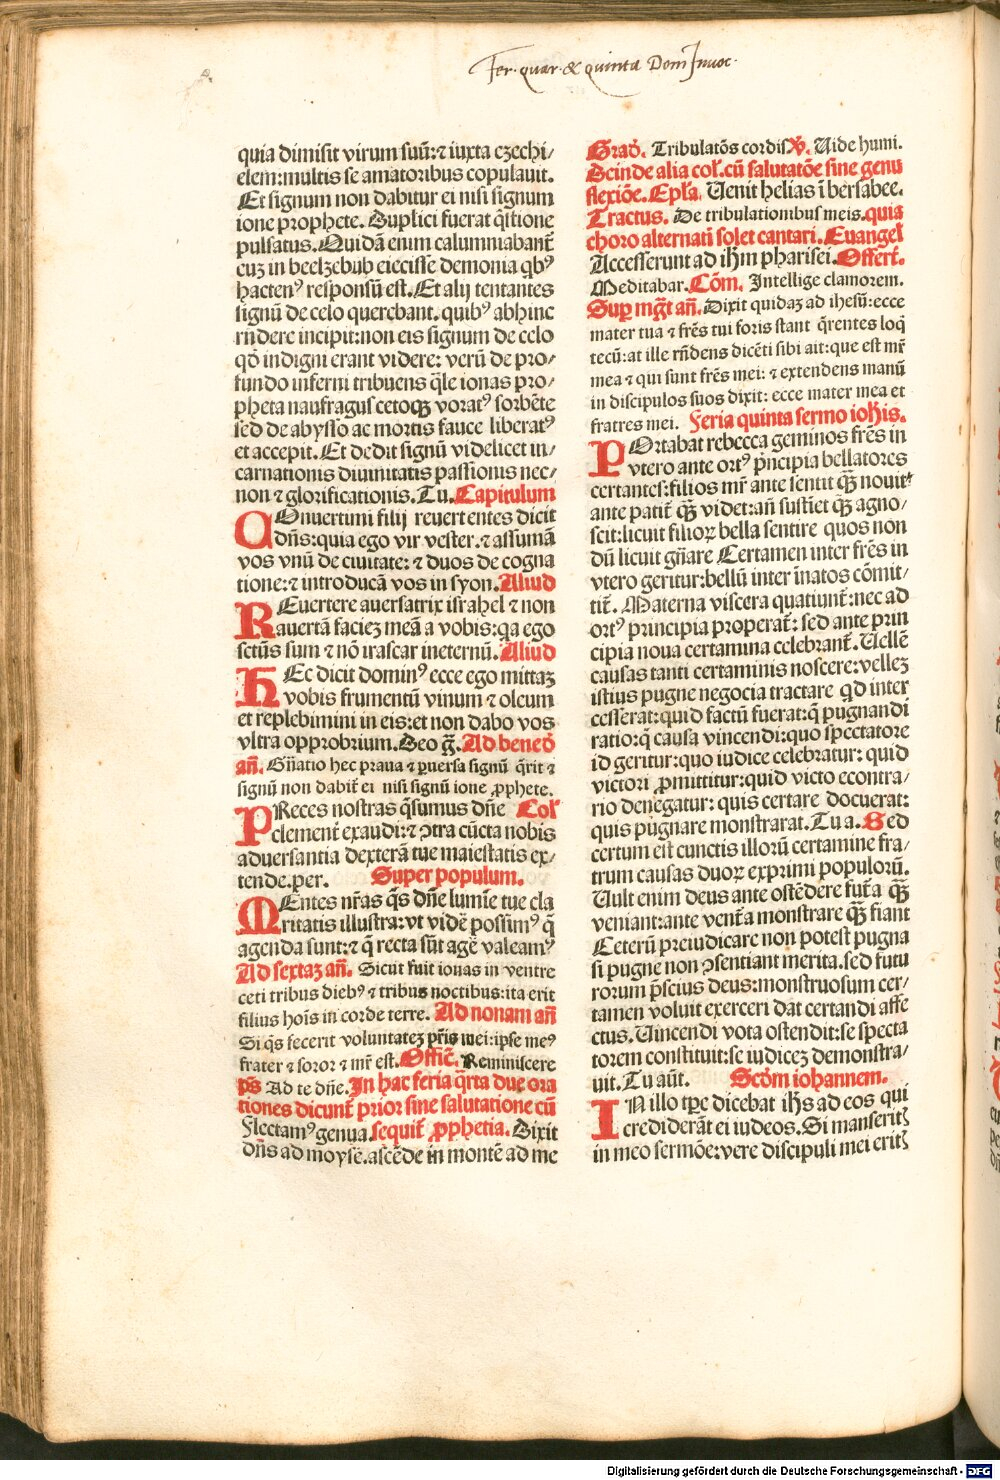 Fer. quar. & quinta Dom Invoc.
quia dimisit virum suū:⁊ iuxta ezechi/
elem:multis se amatoribus copulauit.
Et signum non dabitur ei nisi signum
ione prophete. Duplici fuerat q̄stione
pulsatus. Quidā enim calumniabant̄
euꝫ in beelzebub eiecisse demonia qb⁹
hacten⁹ respōsū est. Et alij tentantes
signū de celo querebant. quib⁹ abhinc
rn̄dere incipit:non eis signum de celo
qd̄ indigni erant videre: verū de pro/
fundo inferni tribuens q̄le ionas pro/
pheta naufragus cetoqꝫ vorat⁹ sorbēte
sed de abysso ac mortis fauce liberat⁹
et accepit. Et dedit signū videlicet in/
carnationis diuinitatis passionis nec/
non ⁊ glorificationis. Tu. Capitulum
COnuertimi filij reuertentes dicit
dn̄s:quia ego vir vester. ⁊ assumā
vos vnū de ciuitate: ⁊ duos de cogna
tione:⁊ introducā vos in syon. Aliud
REuertere auersatrix israhel ⁊ non
auertā facieꝫ meā a vobis:qa ego
sctūs sum ⁊ nō irascar ineternū. Aliud
HEc dicit domin⁹ ecce ego mittaꝫ
vobis frumentū vinum ⁊ oleum
et replebimini in eis:et non dabo vos
vltra opprobrium. Deo gr̄a. Ad bened̄
an̄. Gn̄atio hec praua ⁊ ꝑuersa signū q̄rit ⁊
signū non dabit̄ ei nisi signū ione ꝓphete.
PReces nostras q̄sumus dn̄e Col̄
clement̄ exaudi:⁊ ↄtra cūcta nobis
aduersantia dexterā tue maiestatis ex/
tende. per. Super populum.
MEntes nr̄as q̄s dn̄e lumīe tue cla
ritatis illustra:vt videre possim⁹ q̄
agenda sunt:⁊ q̄ recta sūt agē valeam⁹
Ad sextaꝫ an̄. Sicut fuit ionas in ventre
ceti tribus dieb⁹ ⁊ tribus noctibus:ita erit
filius hoīs in corde terre. Ad nonam an̄
Si q̄s fecerit voluntateꝫ pr̄is mei:ipse me⁹
frater ⁊ soror ⁊ mr̄ est. Offic̄. Reminiscere
ps̄ Ad te dn̄e. In hac feria q̄rta due ora
tiones dicunt̄ prior sine salutatione cū
Flectam⁹ genua. sequit̄ ꝓphetia. Dixit
dn̄s ad moysē. ascēde in montē ad me
Grad̄. Tribulatōs cordis ℣. Uide humi.
Deinde alia col̄. cū salutatōe sine genu
flexiōe. Epl̄a. Uenit helias ī bersabee.
Tractus. De tribulationibus meis. quia
choro alternati solet cantari. Euangel̄
Accesserunt ad ih̄m pharisei. Offert̄.
Meditabar. Cōm. Intellige clamorem.
Suꝑ mgt̄ an̄. Dixit quidaꝫ ad ihesū:ecce
mater tua ⁊ frēs tui foris stant q̄rentes loq̄
tecū:at ille rn̄dens dicēti sibi ait:que est mr̄
mea ⁊ qui sunt frēs mei: ⁊ extendens manū
in discipulos suos dixit: ecce mater mea et
fratres mei. Feria quinta sermo ioh̄is.
POrtabat rebecca geminos frēs in
vtero ante ort⁹ prīncipia bellatores
certantes:filios mr̄ ante sentit qꝫ nouit
ante patit̄ qꝫ videt:an̄ sustiet qꝫ agno/
scit:licuit filioꝝ bella sentire quos non
dū licuit gn̄are Certamen inter frēs in
vtero geritur:bellū inter īnatos cōmit/
tit̄. Materna viscera quatiunt̄:nec ad
ort⁹ principia properat̄: sed ante prin
cipia noua certamina celebrant̄. Uellē
causas tanti certaminis noscere:velleꝫ
istius pugne negocia tractare qd inter
cesserat:quid factū fuerat:q̄ pugnandi
ratio:q̄ causa vincendi:quo spectatore
id geritur:quo iudice celebratur: quid
victori ꝓmittitur:quid victo econtra/
rio denegatur: quis certare docuerat:
quis pugnare monstrarat. Tu a. Sed
certum est cunctis illorū certamine fra/
trum causas duoꝝ exprimi populorū.
Uult enim deus ante ostēdere fut̄a qꝫ
veniant:ante vent̄a monstrare qꝫ fiant
Ceterū preiudicare non potest pugna
si pugne non ↄsentiant merita. sed futu
rorum p̄scius deus:monstruosum cer/
tamen voluit exerceri dat certandi affe
ctus. Uincendi vota ostendit:se specta
torem constituit:se iudiceꝫ demonstra/
uit. Tu aūt. Scd̄m iohannem.
IN illo tꝑe dicebat ih̄s ad eos qui
crediderāt ei iudeos. Si manseritꝭ
in meo sermōe:vere discipuli mei eritꝭ
Digitalisierung gefördert durch die Deutsche Forschungsgemeinschaft - DFG